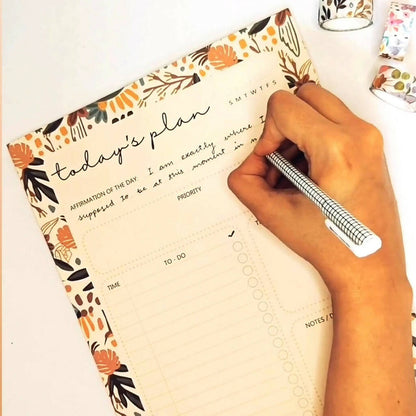 today's plan
S M T W T F S
AFFIRMATION OF THE DAY. I am exactly where I
supposed to be at this moment in
PRIORITY
TO - DO
TIME
NOTES / D